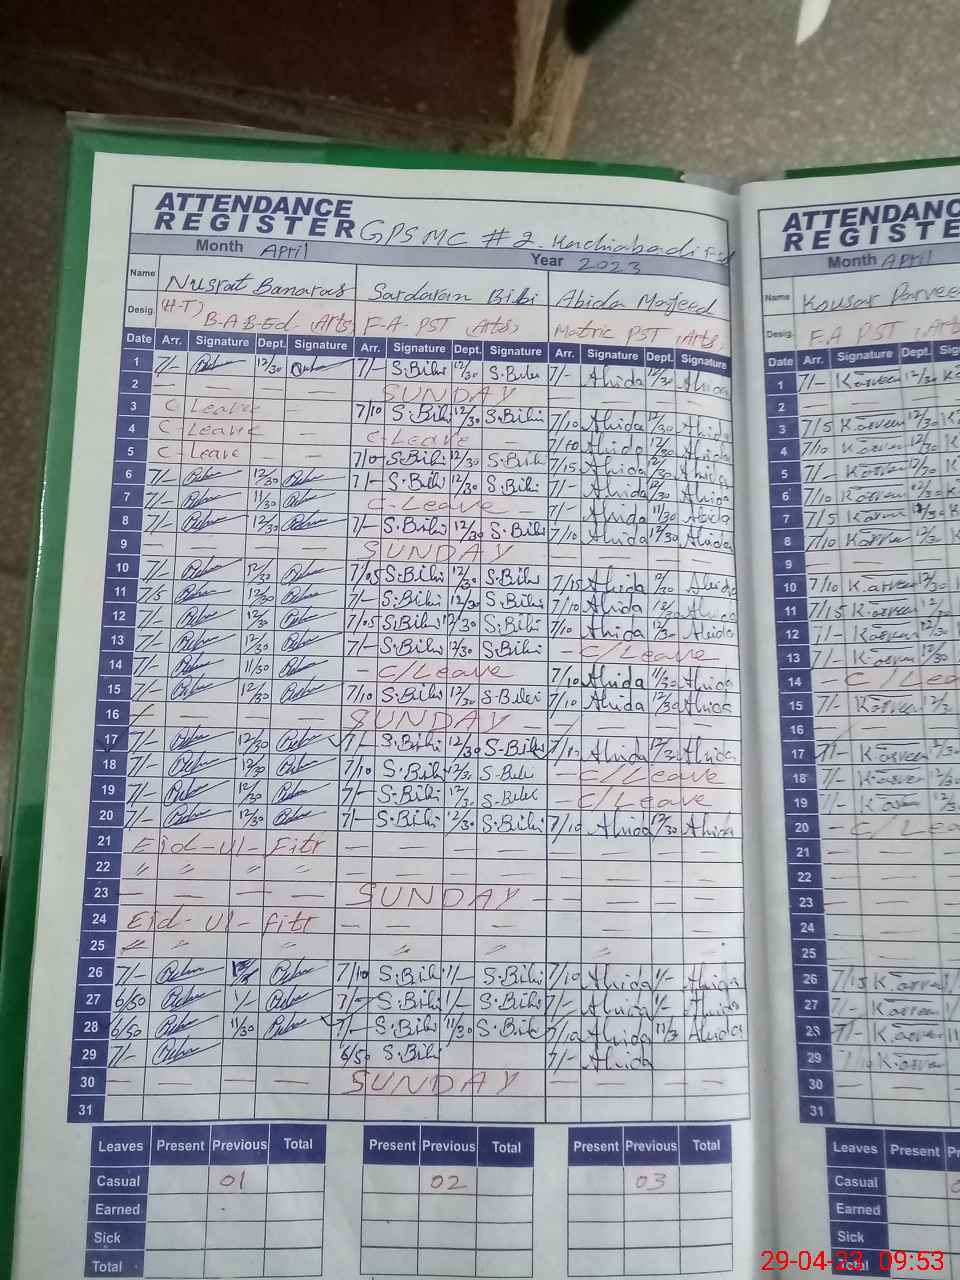 ATTENDANCE
REGISTER GPSMC # 2. Kachiabadi
Month April Year 2023
Name Nusrat Banaras Sardaran Bibi Abida Majeed
Desig. (H-T) B-A-B-Ed (Arts) F-A- PST (Arts) Matric PST (Arts)
Date Arr. Signature Dept. Signature Arr. Signature Dept. Signature Arr. Signature Dept. Signature
1 7/- 12/30 7/- S.Bibi 12/30 S.Bibi 7/- Abida 12/30 Abida
2 — — — — SUNDAY — — — —
3 C-Leave — 7/10 S.Bibi 12/30 S.Bibi 7/10 Abida 12/30 Abida
4 C-Leave — C-Leave — 7/10 Abida 12/30 Abida
5 C-Leave — 7/10 S-Bibi 12/30 S.Bibi 7/15 Abida 12/30 Abida
6 7/- 12/30 7/- S.Bibi 12/30 S.Bibi 7/- Abida 12/30 Abida
7 7/- 11/30 C-Leave — 7/- Abida 11/30 Abida
8 7/- 12/30 7/- S.Bibi 12/30 S.Bibi 7/10 Abida 12/30 Abida
9 — — — — SUNDAY — — — —
10 7/- 12/30 7/05 S.Bibi 12/30 S.Bibi 7/15 Abida 12/30 Abida
11 7/5 12/30 7/- S.Bibi 12/30 S.Bibi 7/10 Abida 12/30 Abida
12 7/- 12/30 7/05 S.Bibi 12/30 S.Bibi 7/10 Abida 12/30 Abida
13 7/- 12/30 7/- S.Bibi 12/30 S.Bibi — C/Leave —
14 7/- 11/30 — C/Leave — 7/10 Abida 11/30 Abida
15 7/- 12/30 7/10 S.Bibi 12/30 S-Bibi 7/10 Abida 12/30 Abida
16 — — — SUNDAY — —
17 7/- 12/30 7/- S.Bibi 12/30 S-Bibi Abida 12/30 Abida
18 7/- 12/30 7/10 S.Bibi 12/30 S-Bibi — C/Leave
19 7/- 12/30 7/- S.Bibi 12/30 S-Bibi — C/Leave
20 7/- 12/30 7/- S.Bibi 12/30 S.Bibi 7/10 Abida 12/30 Abida
21 Eid-ul-Fitr — — — — — — — —
22 〃 〃 〃 〃 — — — — — — — —
23 — — — — SUNDAY — — — — —
24 Eid-Ul-Fitr — — — — — — — —
25 〃 〃 〃 〃 〃 〃
26 7/- 7/10 S.Bibi 1/- S.Bibi 7/10 Abida 1/- Abida
27 6/50 1/- 7/- S.Bibi 1/- S.Bibi 7/- Abida 1/- Abida
28 6/50 11/30 7/- S.Bibi 11/30 S.Bibi 7/10 Abida 11/30 Abida
29 7/- 6/50 S.Bibi 7/- Abida
30 — — — — SUNDAY — — — —
31
Leaves Present Previous Total Present Previous Total Present Previous Total
Casual 01 02 03
Earned
Sick
Total
ATTENDANC
REGISTE
Month April
Name Kousar Parvee
Desig. F.A PST
Date Arr. Signature Dept.
1 7/- Kausar 12/30
2 — — —
3 7/5 Kausar 12/30
4 7/10 Kausar 12/30
5 7/- Kausar 12/30
6 7/10 Kausar 12/30
7 7/5 Kausar
8 7/10 Kausar 12/30
9 — — —
10 7/10 Kausar 12/30
11 7/15 Kausar
12 7/- Kausar 12/30
13 7/- Kausar 12/30
14 — C/Lea
15 7/- Kausar
16 — — —
17 7/- Kausar
18 7/- Kausar
19 7/- Kausar
20 — C/Lea
21 — — —
22 — — —
23 — — —
24 — — —
25 — — —
26 7/15 Kausar
27 7/- Kausar
28 7/- Kausar
29 7/10 Kausar
30 — — —
31
Leaves Present
Casual
Earned
Sick
Total
29-04-23 09:53